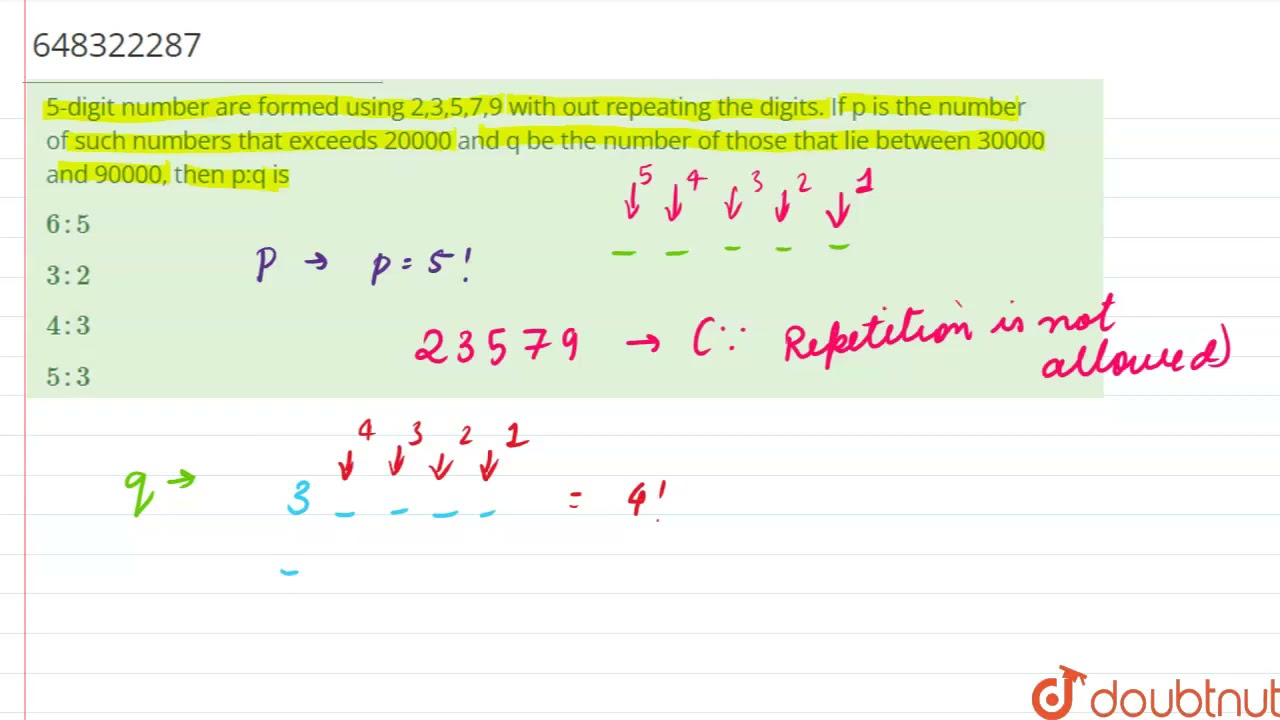 648322287
5-digit number are formed using 2,3,5,7,9 with out repeating the digits. If p is the number
of such numbers that exceeds 20000 and q be the number of those that lie between 30000
and 90000, then p:q is
5 4 3 2 1
6 : 5
P → p = 5!
3 : 2
4 : 3
2 3 5 7 9 → (∵ Repetition is not
allowed)
5 : 3
4 3 2 1
q → 3 _ _ _ _ = 4!
doubtnut